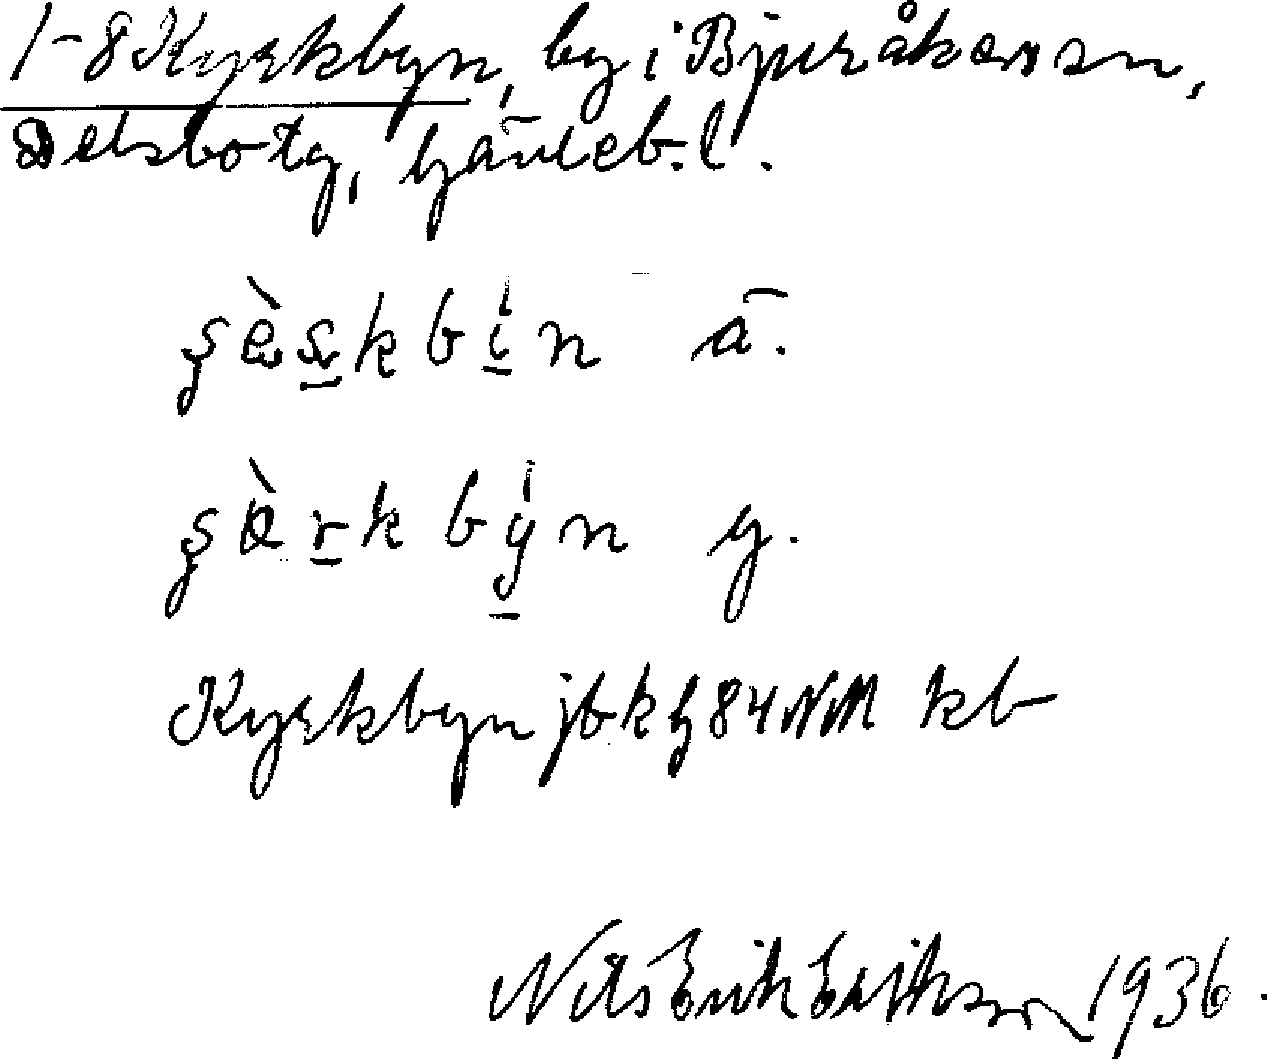 1-8 Kyrkbyn, by i Bjuråkers sn,
Delsbo tg, Gävleb. l.
ä.
y.
Kyrkbyn jbkf 84 NM kb
Nils Erik Eriksson 1936.